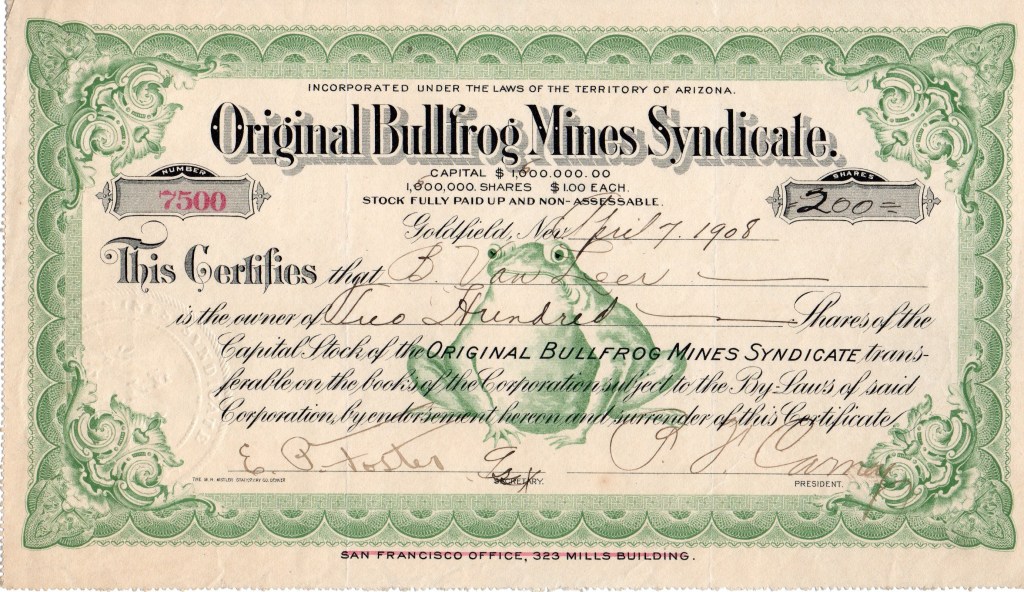 INCORPORATED UNDER THE LAWS OF THE TERRITORY OF ARIZONA.
Original Bullfrog Mines Syndicate.
CAPITAL $1,000.000.00
1,000,000. SHARES $1.00 EACH.
STOCK FULLY PAID UP AND NON-ASSESSABLE.
NUMBER
7500
SHARES
200=
Goldfield, Nev April 7. 1908
This Certifies that B. Van Leer
is the owner of Two Hundred Shares of the
Capital Stock of the ORIGINAL BULLFROG MINES SYNDICATE trans-
ferable on the books of the Corporation subject to the By-Laws of said
Corporation, by endorsement hereon and surrender of this Certificate.
E. P. Foster
SECRETARY.
PRESIDENT.
THE W.H. KISTLER STATIONERY CO. DENVER
SAN FRANCISCO OFFICE, 323 MILLS BUILDING.